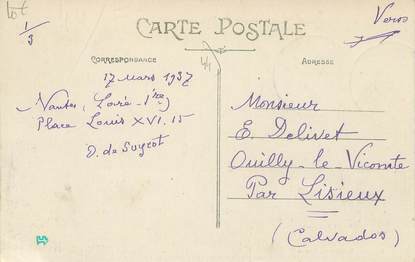 Lot
1/3
CARTE POSTALE
Verso
CORRESPONDANCE
ADRESSE
17 mars 1937
Nantes, Loire-Ire
Place Louis XVI. 15
D. de Suyrot
Monsieur
E. Delivet
Ouilly-le-Vicomte
Par Lisieux
(Calvados)